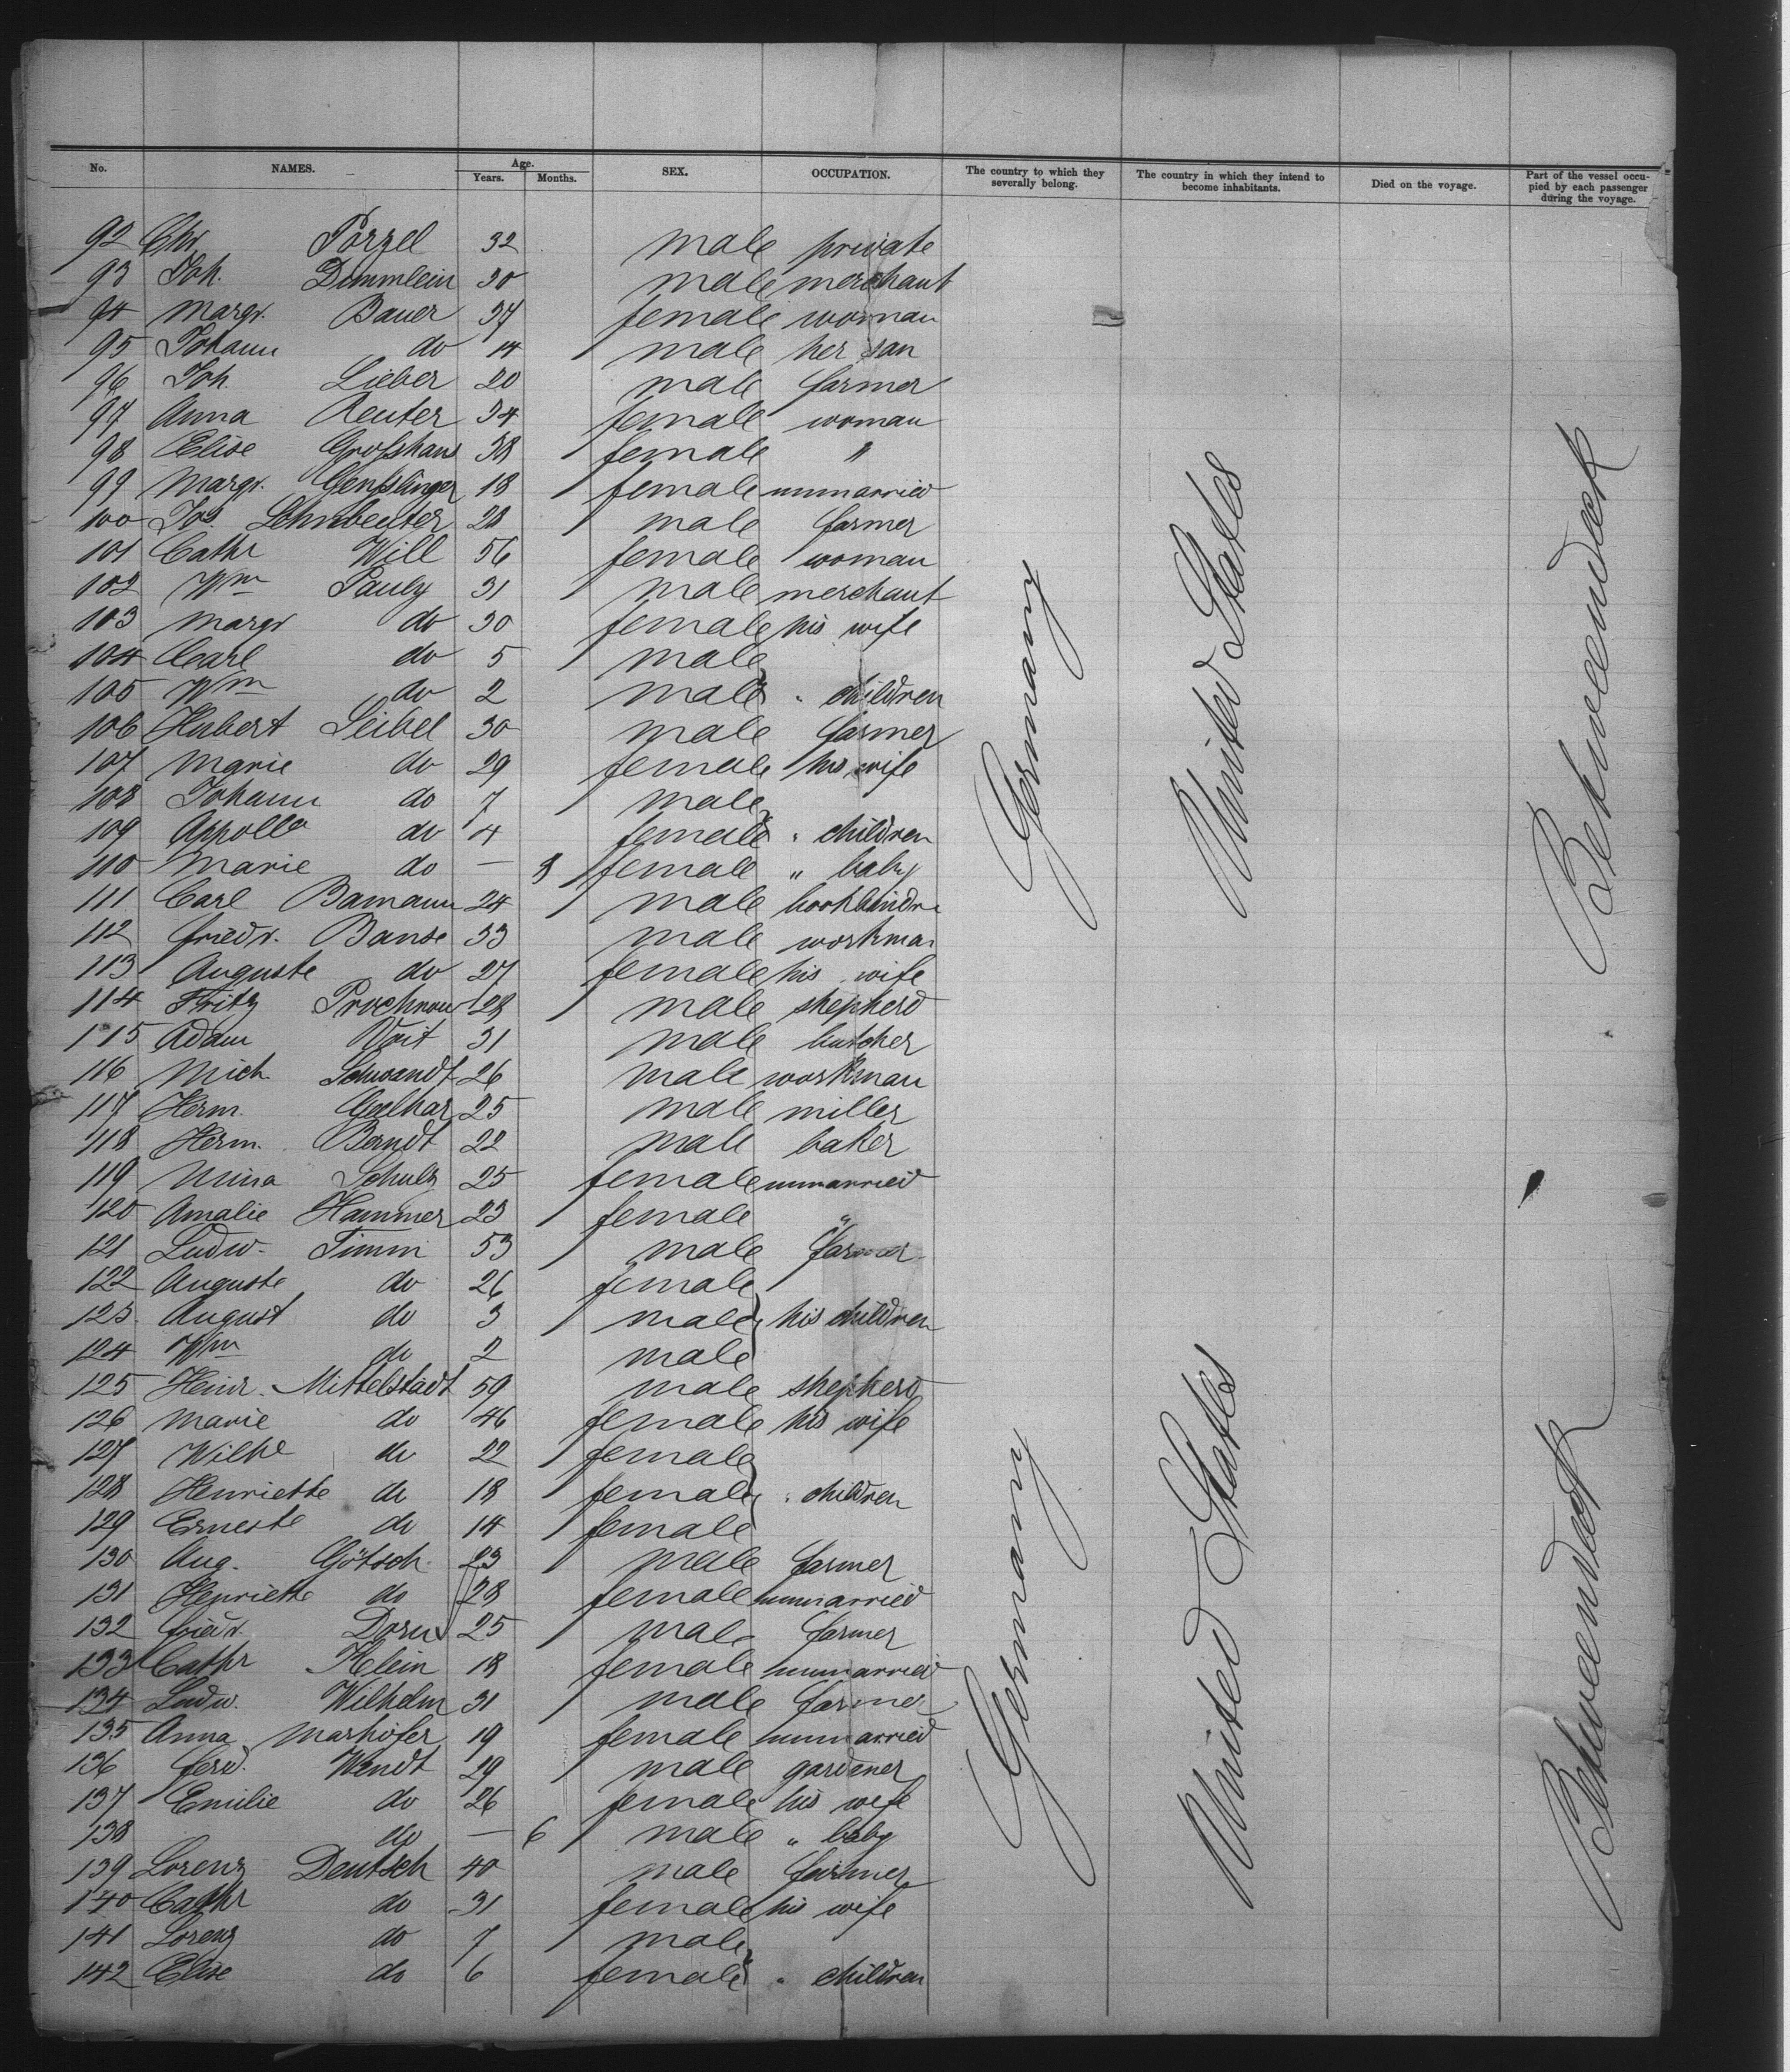 No. NAMES. Age. Years. Months. SEX. OCCUPATION. The country to which they severally belong. The country in which they intend to become inhabitants. Died on the voyage. Part of the vessel occupied by each passenger during the voyage.
92 Chr. Porzel 32 male private
93 Joh. Dimmlein 30 male merchant
94 Margr. Bauer 37 female woman
95 Johann do 14 male her son
96 Joh. Lieber 20 male farmer
97 Anna Reuter 34 female woman
98 Elise Großhans 38 female "
99 Margr. Genßlinger 18 female unmarried
100 Jos. 28 male farmer
101 Cathr Will 56 female woman
102 Wm Pauly 31 male merchant
103 Margr do 30 female his wife
104 Carl do 5 male
105 Wm do 2 male " children
106 Hubert Seibel 30 male farmer
107 Marie do 29 female his wife
108 Johann do 7 male
109 do 4 female " children
110 Marie do — 8 female " baby
111 Carl Bamann 24 male bookbinder
112 Friedr. Banse 33 male workman
113 Auguste do 27 female his wife
114 Fritz Prochnow 28 male shepherd
115 Adam Voit 31 male butcher
116 Mich. Schwandt 26 male workman
117 Herm. Gelhar 25 male miller
118 Herm. Berndt 22 male baker
119 Mina Schulz 25 female unmarried
120 Amalie Hammer 23 female "
121 Ludw. Timm 53 male farmer
122 Auguste do 26 female
123 August do 3 male his children
124 Wm do 2 male
125 Heinr. Mittelstädt 59 male shepherd
126 Marie do 46 female his wife
127 Wilhe do 22 female
128 Henriette do 18 female " children
129 Erneste do 14 female
130 Aug. Götsch 23 male farmer
131 Henriette do 28 female unmarried
132 Friedr. Dorn 25 male farmer
133 Cathr Klein 18 female unmarried
134 Ludw. Wilhelm 31 male farmer
135 Anna Marhöfer 19 female unmarried
136 Ferd. Wendt 29 male gardener
137 Emilie do 26 female his wife
138 do — 6 male " baby
139 Lorenz Deutsch 40 male farmer
140 Cathr do 31 female his wife
141 Lorenz do 7 male
142 Elise do 6 female " children
Germany
United States
Betweendeck
Germany
United States
Betweendeck